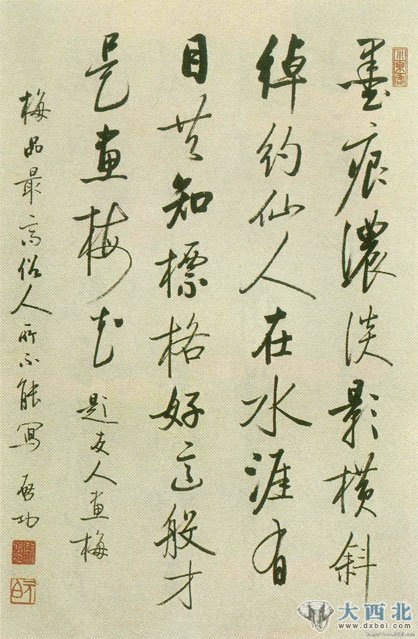 墨痕濃淡影横斜
绰约仙人在水涯有
目共知標格好這般才
是画梅花 題友人画梅
梅品最高俗人所不能寫 启功
大西北
www.dxbei.com